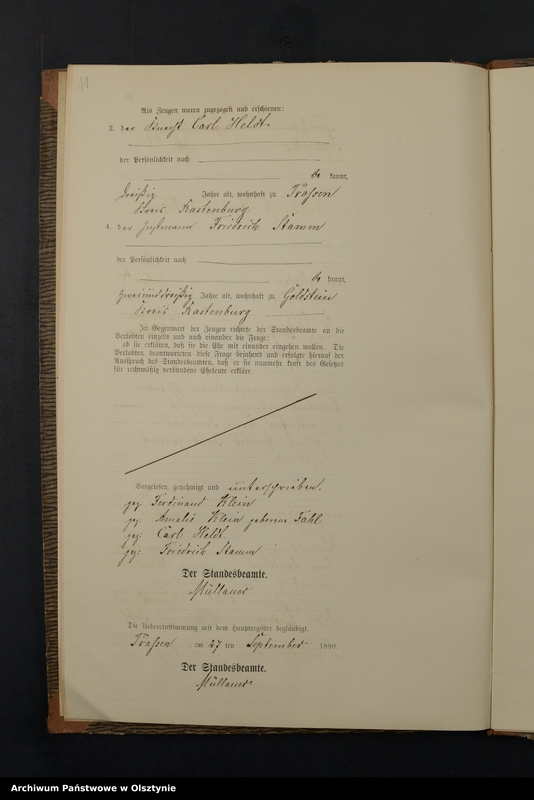 11
Als Zeugen waren zugezogen und erschienen:
3. der Knecht Carl Heldt.
der Persönlichkeit nach
be kannt,
dreißig Jahre alt, wohnhaft zu Traßen
Kreis Rastenburg
4. der Instmann Friedrich Stamm
der Persönlichkeit nach
be kannt,
zweiunddreißig Jahre alt, wohnhaft zu Goldstein
Kreis Rastenburg
In Gegenwart der Zeugen richtete der Standesbeamte an die
Verlobten einzeln und nach einander die Frage:
ob sie erklären, daß sie die Ehe mit einander eingehen wollen. Die
Verlobten beantworteten diese Frage bejahend und erfolgte hierauf der
Ausspruch des Standesbeamten, daß er sie nunmehr kraft des Gesetzes
für rechtmäßig verbundene Eheleute erkläre.
Vorgelesen, genehmigt und unterschrieben.
gez: Ferdinand Klein
gez: Amalie Klein geborene Fahl
gez: Carl Heldt.
gez: Friedrich Stamm
Der Standesbeamte.
Müllauer
Die Uebereinstimmung mit dem Hauptregister beglaubigt
Traßen am 27 ten September 1880.
Der Standesbeamte.
Müllauer
Archiwum Państwowe w Olsztynie